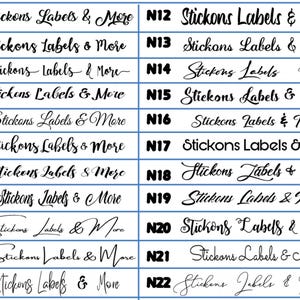 Stickons Labels & More
Stickons Labels & More
Stickons Labels & More
Stickons Labels & More
Stickons Labels & More
Stickons Labels & More
Stickons Labels & More
Stickons Labels & More
Stickons Labels & More
Stickons Labels & More
Stickons Labels & More
N12 Stickons Labels &
N13 Stickons Labels &
N14 Stickons Labels
N15 Stickons Labels &
N16 Stickons Labels &
N17 Stickons Labels &
N18 Stickons Labels &
N19 Stickons Labels &
N20 Stickons Labels &
N21 Stickons Labels &
N22 Stickons Labels &